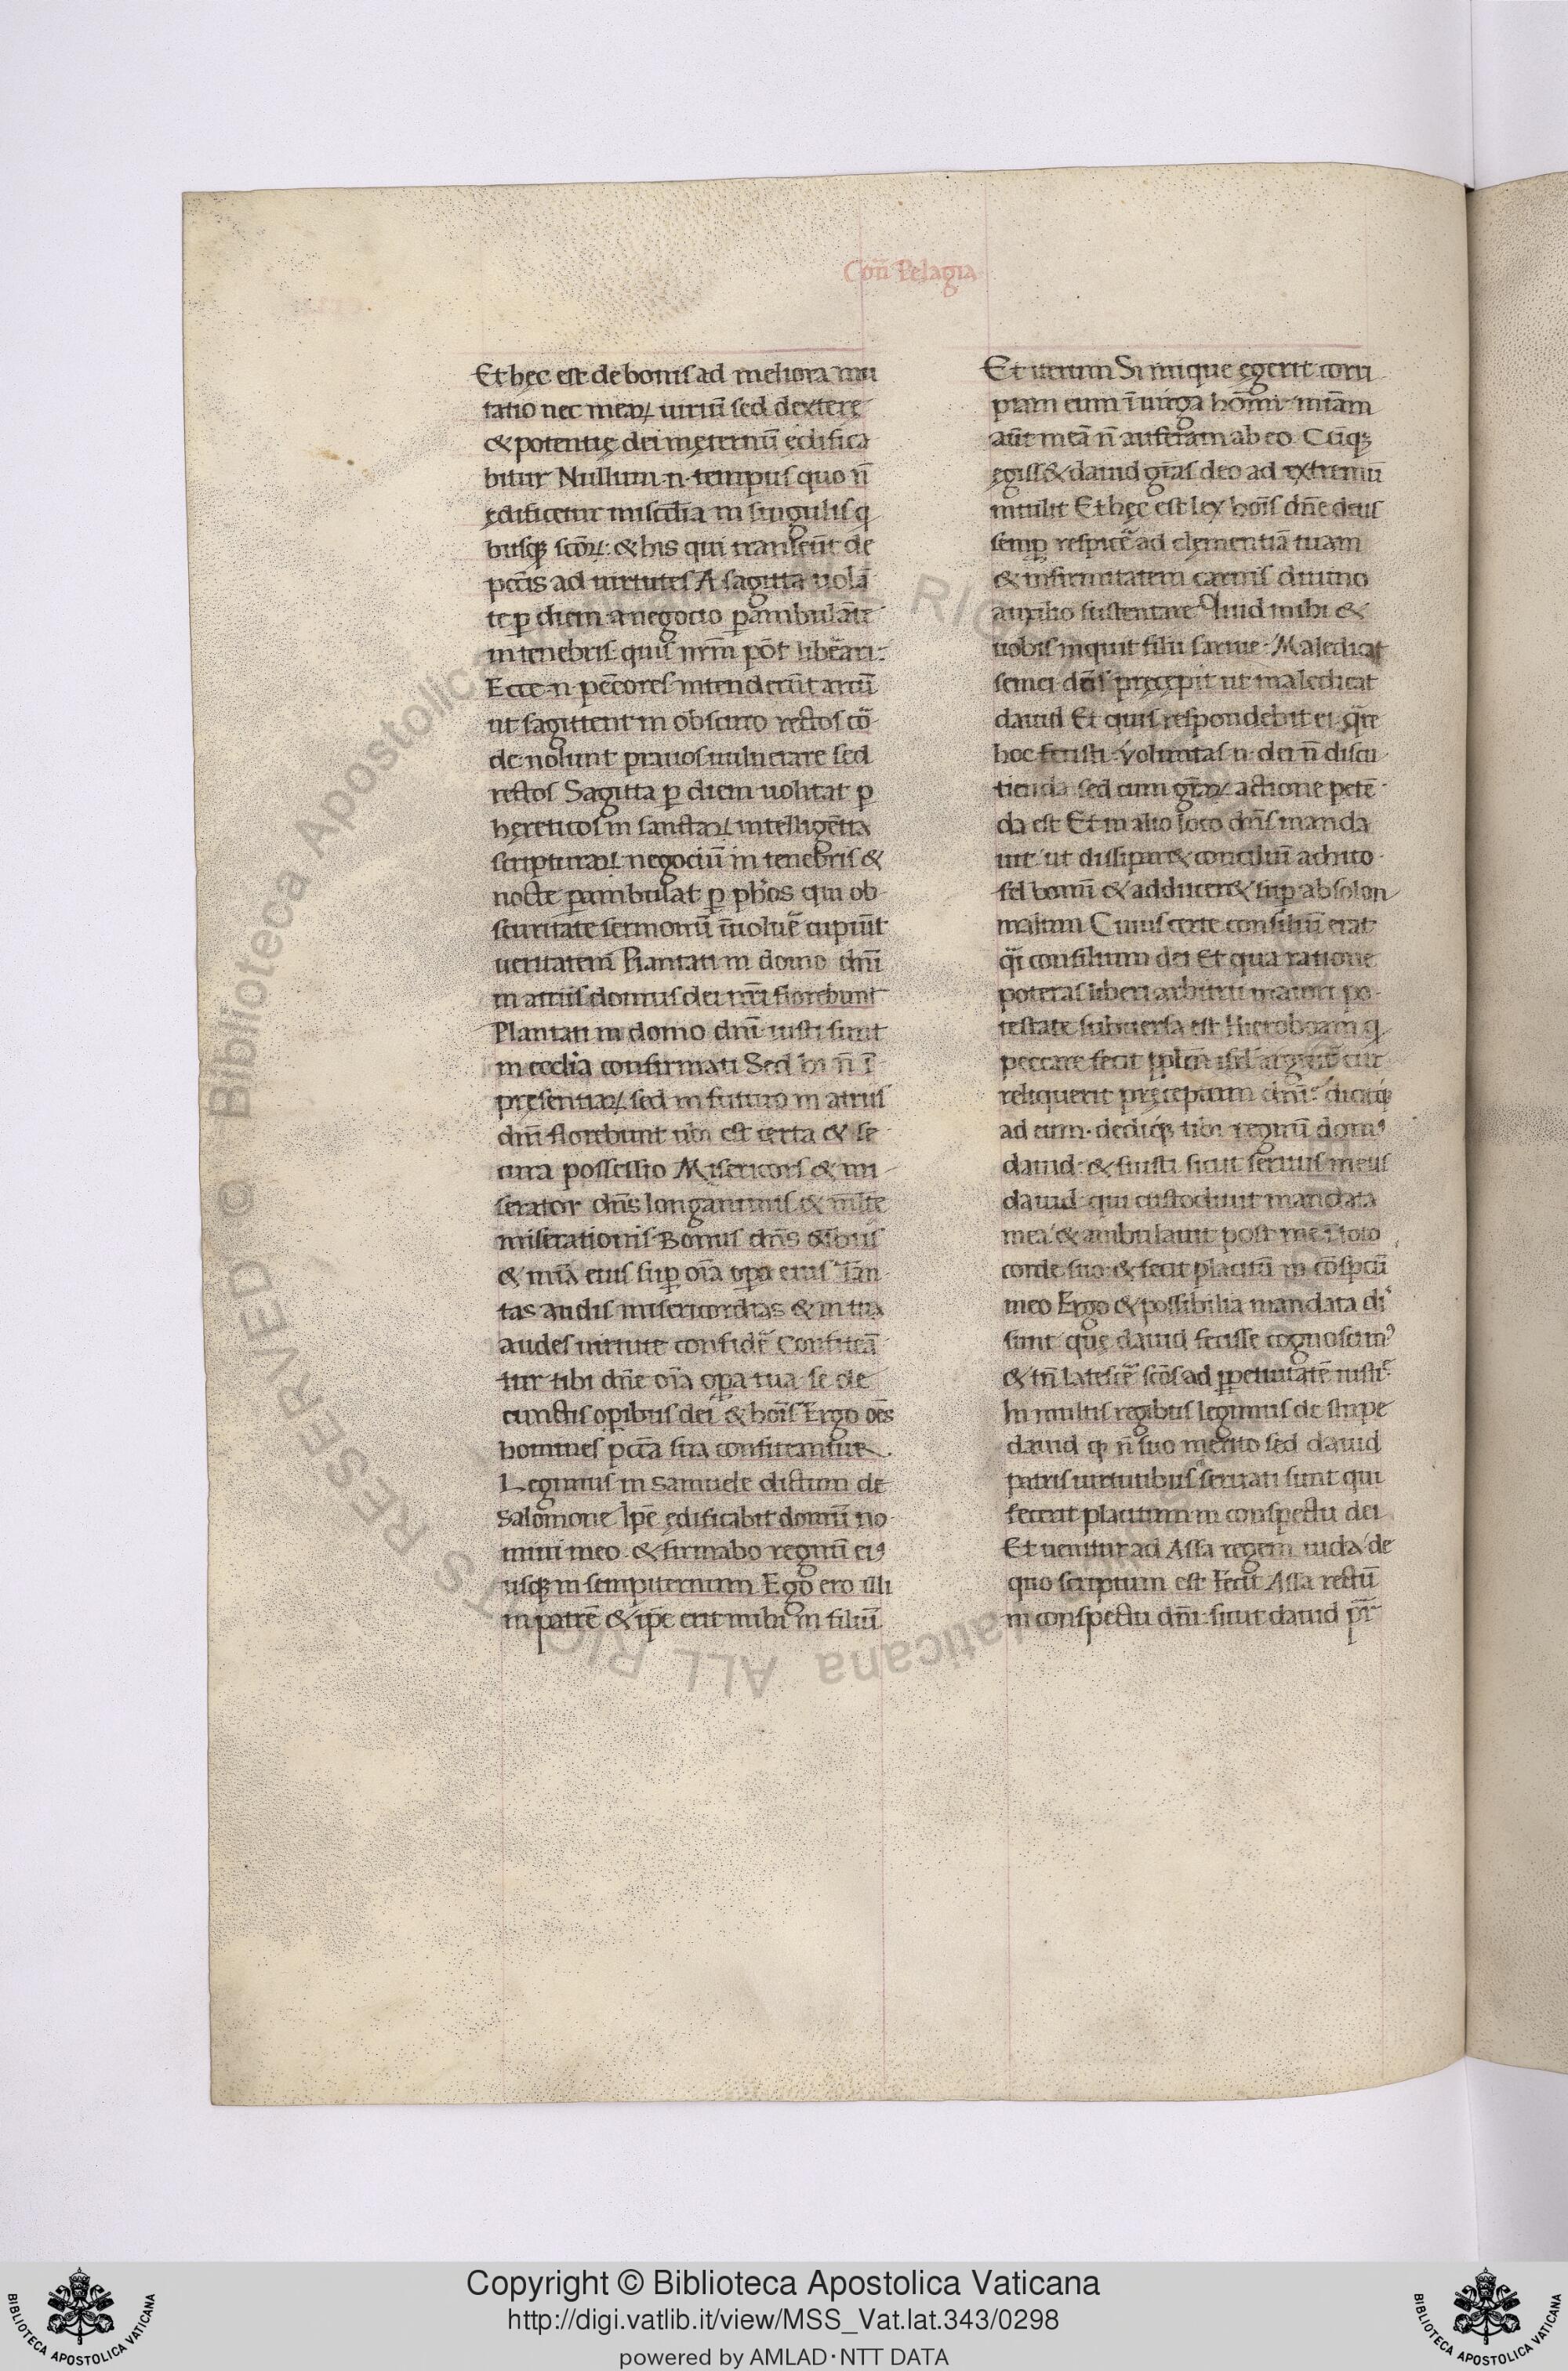 Con̄ Pelagia
Et hęc est de bonis ad meliora mu
tatio nec mearꝝ uiriū sed dexterę
& potentię dei in ęternū ędifica
bitur Nullum .n. tempus quo n̄
ędificetur misc̄dia in singulis q
busq; sc̄oꝝ: & his qui transeūt de
pctīs ad uirtutes A sagitta uolā
te ꝑ diem a negocio ꝑambulāte
in tenebris quis nrm̄ pōt liberari:
Ecce .n. peccores intenderūt arcū
ut sagittent in obscuro rectos cor̄
de nolunt prauos uulnerare sed
rectos Sagitta ꝑ diem uolitat ꝑ
hęreticos in sanctaꝝ intelligētia
scripturaꝝ negociū in tenebris &
nocte ꝑambulat ꝑ ph̄os qui ob
scuritate sermonū īuoluē cupiūt
ueritatem Plantati in domo dn̄i
in atriis domus dei nr̄i florebunt
Plantati in domo dn̄i iusti sunt
in ecclīa confirmati Sed hi n̄ ī
presentiaꝝ sed in futuro in atriis
dn̄i florebunt ubi est certa & se
cura possessio Misericors & mi
serator dn̄s longanimis & multe
miserationis Bonus dn̄s ōibus
& mīa eius suꝑ oīa oꝑa eius Tan
tas audis misericordias & in tua
audes uirtute confidē Confiteā
tur tibi dn̄e oīa oꝑa tua se de
cunctis oꝑibus dei & hoīs Ergo oēs
homines pctā sua confiteantur.
Legimus in Samuele dictum de
Salomone Ipē ędificabit domū no
mini meo & firmabo regnū ei9
usq; in sempiternum Ego ero illi
in patrē & ipē erit mihi in filiū
Et iterum Si inique ęgerit corri
piam eum ī uirga hom̄i mīam
aūt meā n̄ auferam ab eo Cūq;
egiss& dauid grās deo ad extremū
intulit Et hęc est lex hoīs dn̄e deus
semꝑ respicē ad clęmentiā tuam
& infirmitatem carnis diuino
auxilio sustentare Quid mihi &
uobis inquit filii saruie Maledicat
semei dn̄s pręcepit ut maledicat
dauid Et quis respondebit ei qr̄e
hoc fecisti voluntas .n. dei n̄ discu
tienda sed cum gr̄aꝝ actione petē
da est Et in alio loco dn̄s manda
uit ut dissipar& conciliū achito
fel bonū & adducer& suꝑ absolon
malum Cuius certe consiliū erat
qī consilium dei Et qua ratione
poteras liberi arbitrii maiori po
testate subuersa est Hieroboam q
peccare fecit pplm̄ isrl arguit cur
reliquerit pręceptum dn̄i diciq;
ad eum dediq; tibi regnū dom9
dauid & fuisti sicut seruus meus
dauid qui custodiuit mandata
mea & ambulauit post me ī toto
corde suo & fecit placitū in cōspectū
meo Ergo & possibilia mandata di
sunt quę dauid fecisse cognoscim9
& tn̄ latescē scōs ad ꝑpetuitatē iusti
In multis regibus legimus de stirpe
dauid q; n̄ suo merito sed dauid
patris uirtutibus seruati sunt qui
fecerit placitum in conspectu dei
Et uenitur ad Assa regem iuda de
quo scriptum est Fecit Assa rectū
in conspectu dn̄i sicut dauid pr̄
© Biblioteca Apostolica Vaticana ALL RIGHTS RESERVED
Copyright © Biblioteca Apostolica Vaticana
http://digi.vatlib.it/view/MSS_Vat.lat.343/0298
powered by AMLAD·NTT DATA
BIBLIOTECA APOSTOLICA VATICANA
BIBLIOTECA APOSTOLICA VATICANA